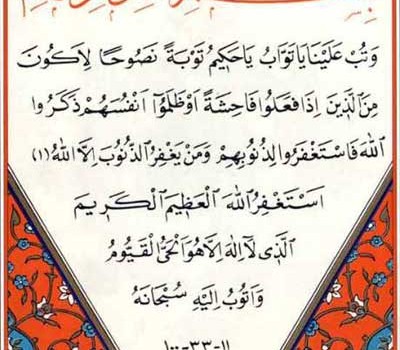 وَتُبْ عَلَيْنَا يَا تَوَّابُ يَا حَكِيمُ تَوْبَةً نَصُوحًا لِاَكُونَ
مِنَ الَّذِينَ اِذَا فَعَلُوا فَاحِشَةً اَوْظَلَمُوٓا اَنْفُسَهُمْ ذَكَرُوا
اللهَ فَاسْتَغْفَرُوا لِذُنُوبِهِمْ وَمَنْ يَغْفِرُ الذُّنُوبَ اِلاَّ اللهُ (١١)
اَسْتَغْفِرُ اللهَ الْعَظِيمَ الْكَرِيمَ
الَّذِى لَا اِلٰهَ اِلاَّ هُوَ الْحَىُّ الْقَيُّومُ
وَاَتُوبُ اِلَيْهِ سُبْحَانَهُ
١١-٣٣-١٠٠